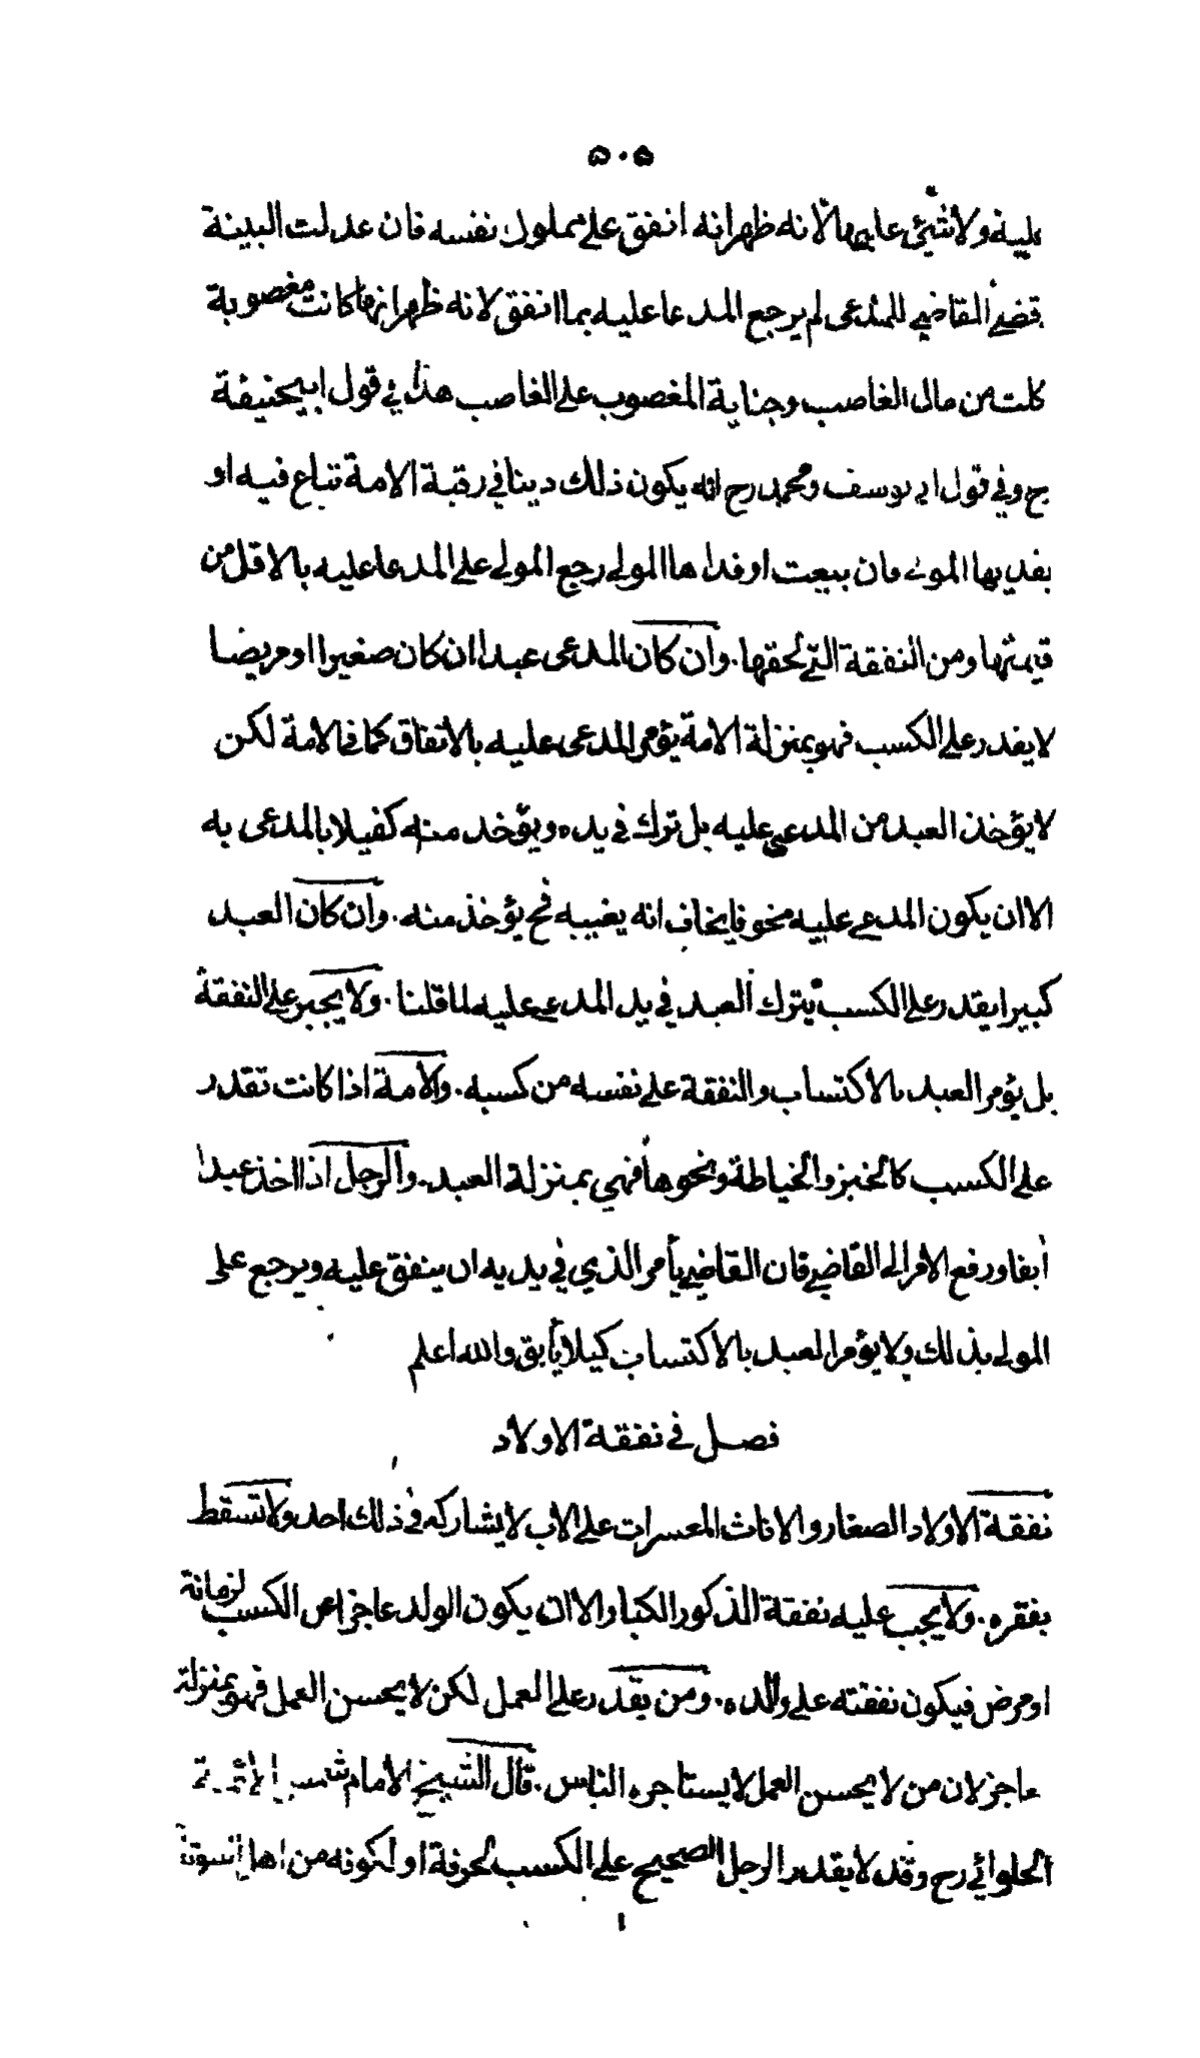 ٥٠٥
ولا شئ عليها لانه ظهر انه انفق على مملوك نفسه فان عدلت البينة
قضى القاضي للمدعى لم يرجع المدعا عليه بما انفق لانه ظهر انها كانت مغصوبة
كلت من مال الغاصب وجناية المغصوب على الغاصب هذا في قول ابيحنيفة
رح وفي قول ابي يوسف ومحمد رح انه يكون ذلك دينا في رقبة الامة تباع فيه او
يفديها المولى فان بيعت او فداها المولى رجع المولى على المدعا عليه بالاقل من
قيمتها ومن النفقة التي لحقها . وان كان المدعى عبدا ان كان صغيرا او مريضا
لا يقدر على الكسب فهو بمنزلة الامة يؤمر المدعى عليه بالانفاق كما في الامة لكن
لا يؤخذ العبد من المدعى عليه بل ترك في يده ويؤخذ منه كفيلا بالمدعى به
الا ان يكون المدعى عليه مخوفا يخاف انه يغيبه فح يؤخذ منه . وان كان العبد
كبيرا يقدر على الكسب يترك العبد في يد المدعى عليه لما قلنا . ولا يجبر على النفقة
بل يؤمر العبد بالاكتساب والنفقة على نفسه من كسبه . والامة اذا كانت تقدر
على الكسب كالخبز والخياطة ونحوها فهي بمنزلة العبد . والرجل اذا اخذ عبدا
أبقا ورفع الامر الى القاضي فان القاضي يأمر الذي في يديه ان ينفق عليه ويرجع على
المولى بذلك ولا يؤمر العبد بالاكتساب كيلا يأبق والله اعلم
فصل في نفقة الاولاد
نفقة الاولاد الصغار والاناث المعسرات على الاب لا يشاركه في ذلك احد ولا تسقط
بفقره . ولا يجب عليه نفقة الذكور الكبار الا ان يكون الولد عاجزا عن الكسب لزمانة
او مرض فيكون نفقته على والده . ومن يقدر على العمل لكن لا يحسن العمل فهو بمنزلة
عاجز لان من لا يحسن العمل لا يستاجره الناس . قال الشيخ الامام شمس الائمة
الحلوائي رح وقد لا يقدر الرجل الصحيح على الكسب لحرفة او لكونه من اهل